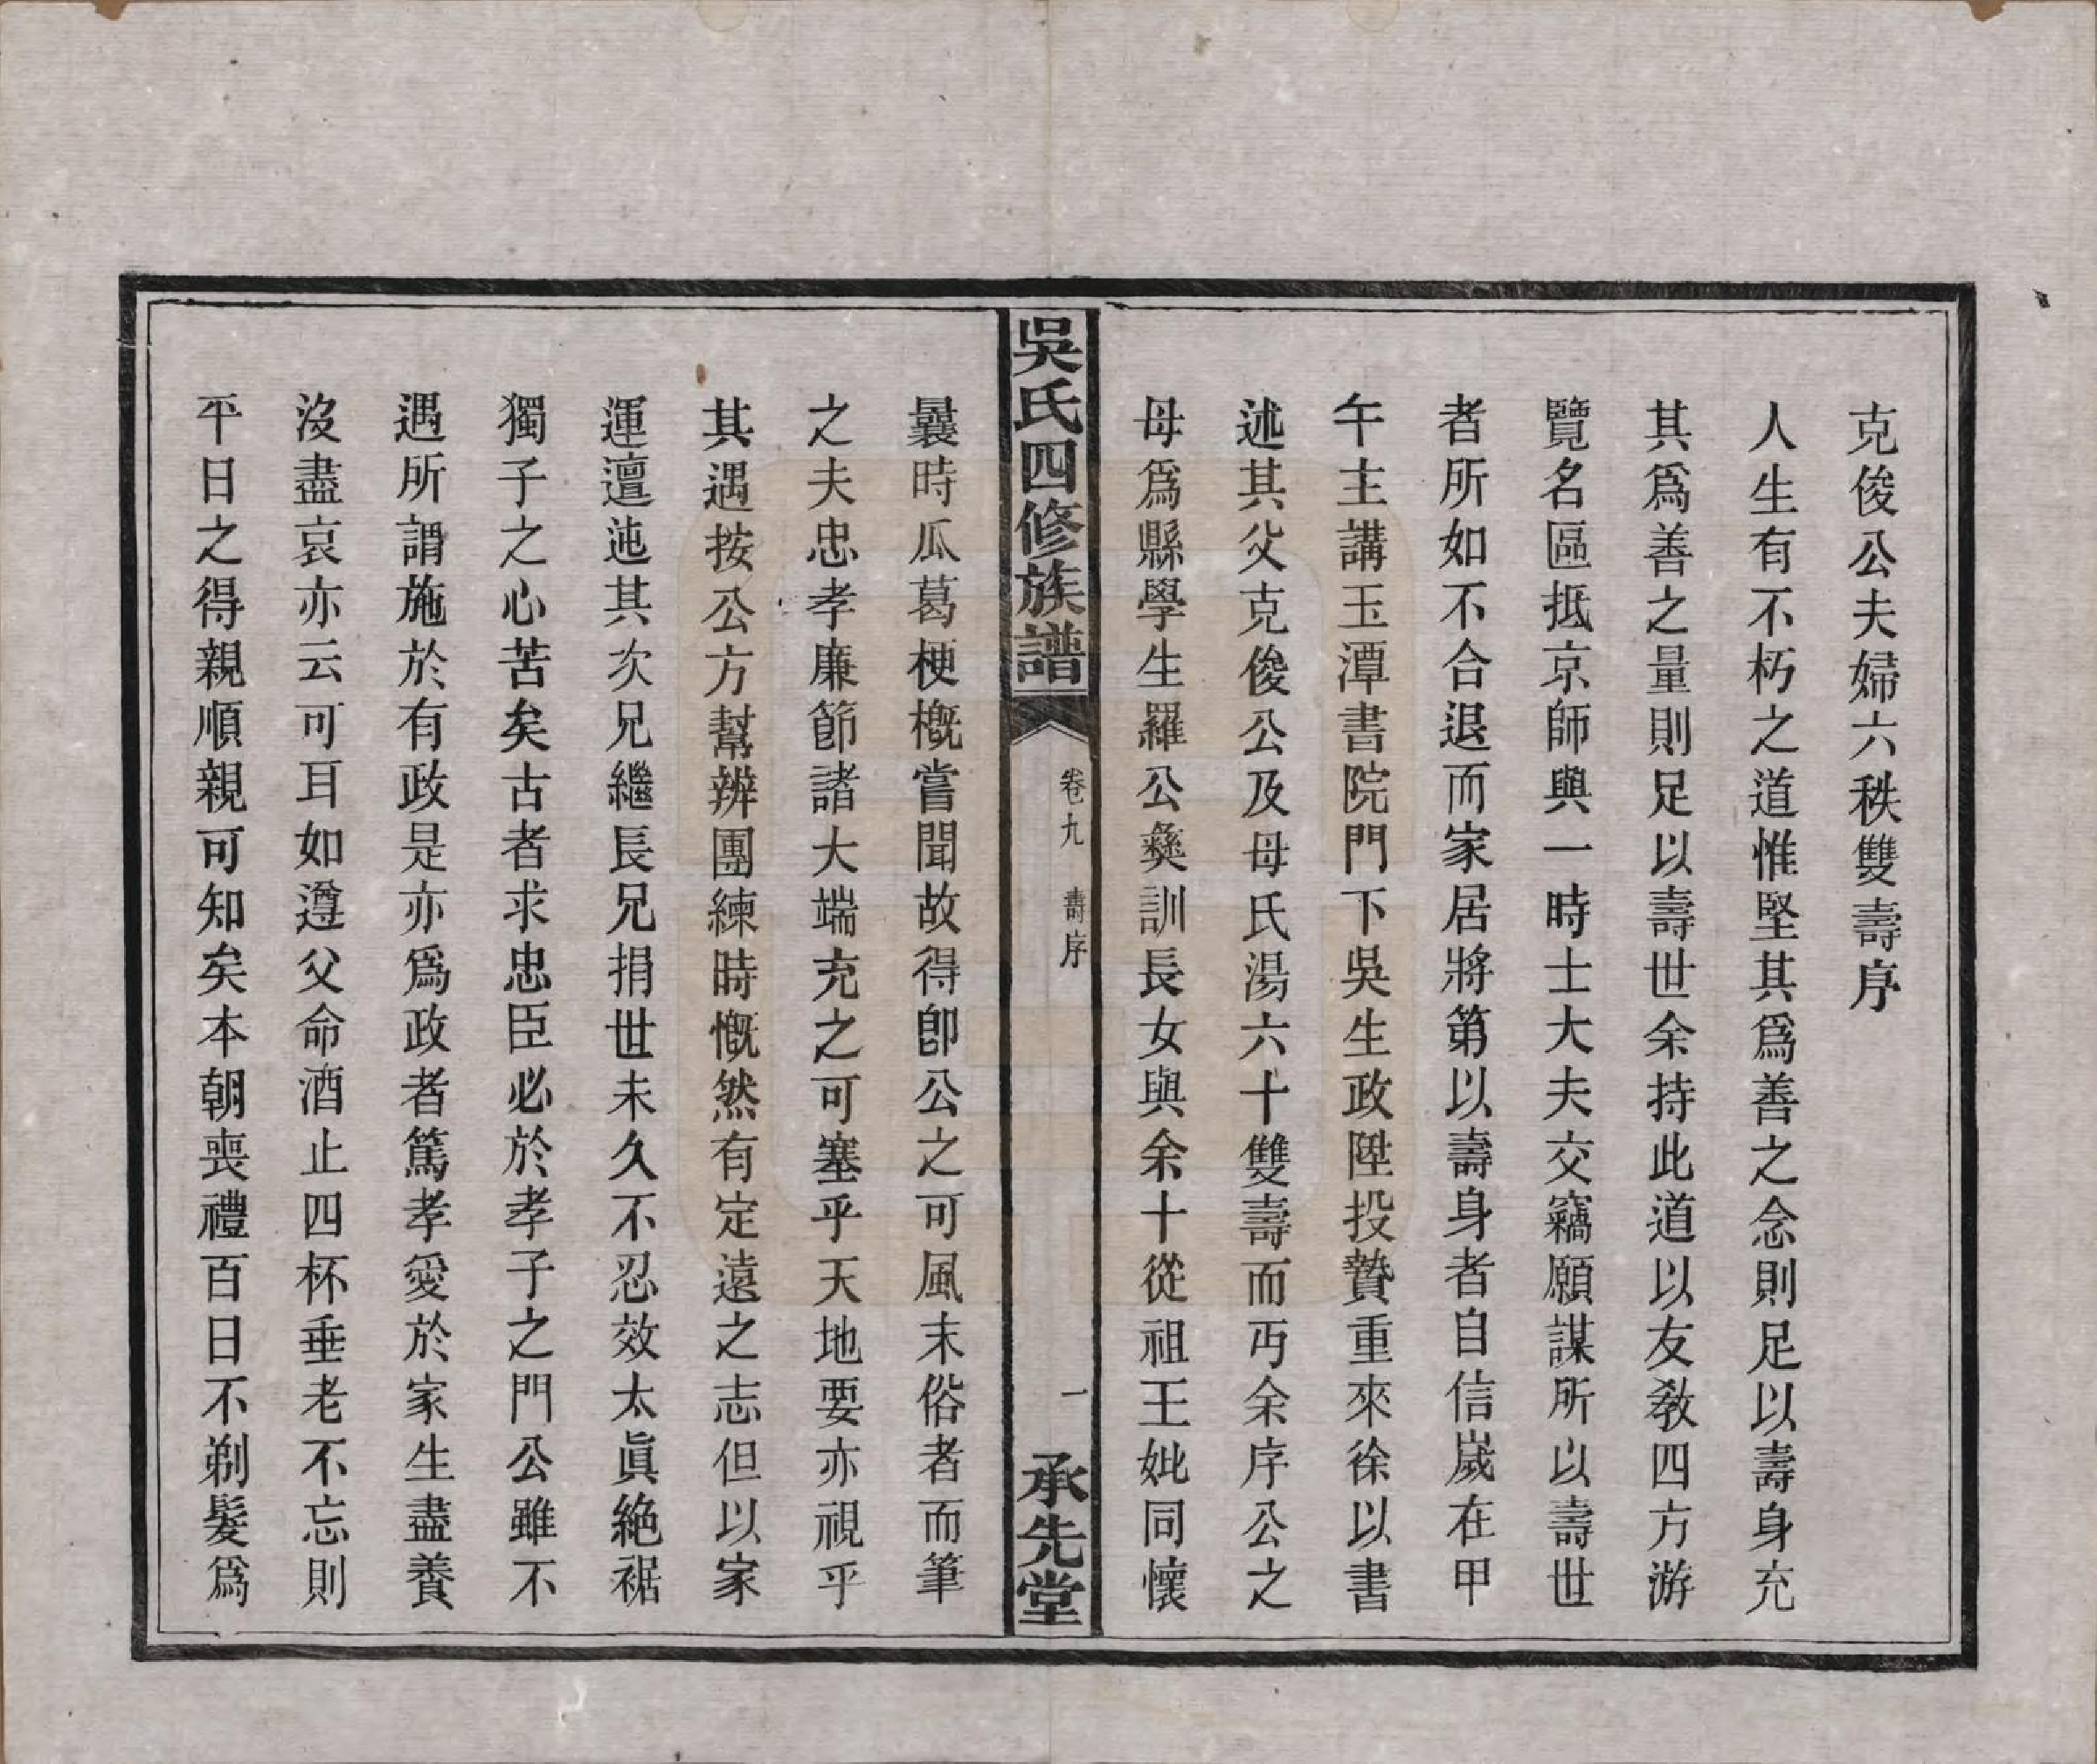 克俊公夫婦六秩雙壽序
人生有不朽之道惟堅其爲善之念則足以壽身充
其爲善之量則足以壽世余持此道以友敎四方游
覽名區抵京師與一時士大夫交竊願謀所以壽世
者所如不合退而家居將第以壽身者自信嵗在甲
午主講玉潭書院門下吳生政陞投贄重來徐以書
述其父克俊公及母氏湯六十雙壽而丏余序公之
母爲縣學生羅公彝訓長女與余十從祖王妣同懷
吳氏四修族譜
卷九 壽序
一
承先堂
曩時瓜葛梗槪嘗聞故得卽公之可風末俗者而筆
之夫忠孝廉節諸大端充之可塞乎天地要亦視乎
其遇按公方幫辦團練時慨然有定遠之志但以家
運邅迍其次兄繼長兄捐世未久不忍效太眞絶裾
獨子之心苦矣古者求忠臣必於孝子之門公雖不
遇所謂施於有政是亦爲政者篤孝愛於家生盡養
沒盡哀亦云可耳如遵父命酒止四杯垂老不忘則
平日之得親順親可知矣本朝喪禮百日不剃髮爲